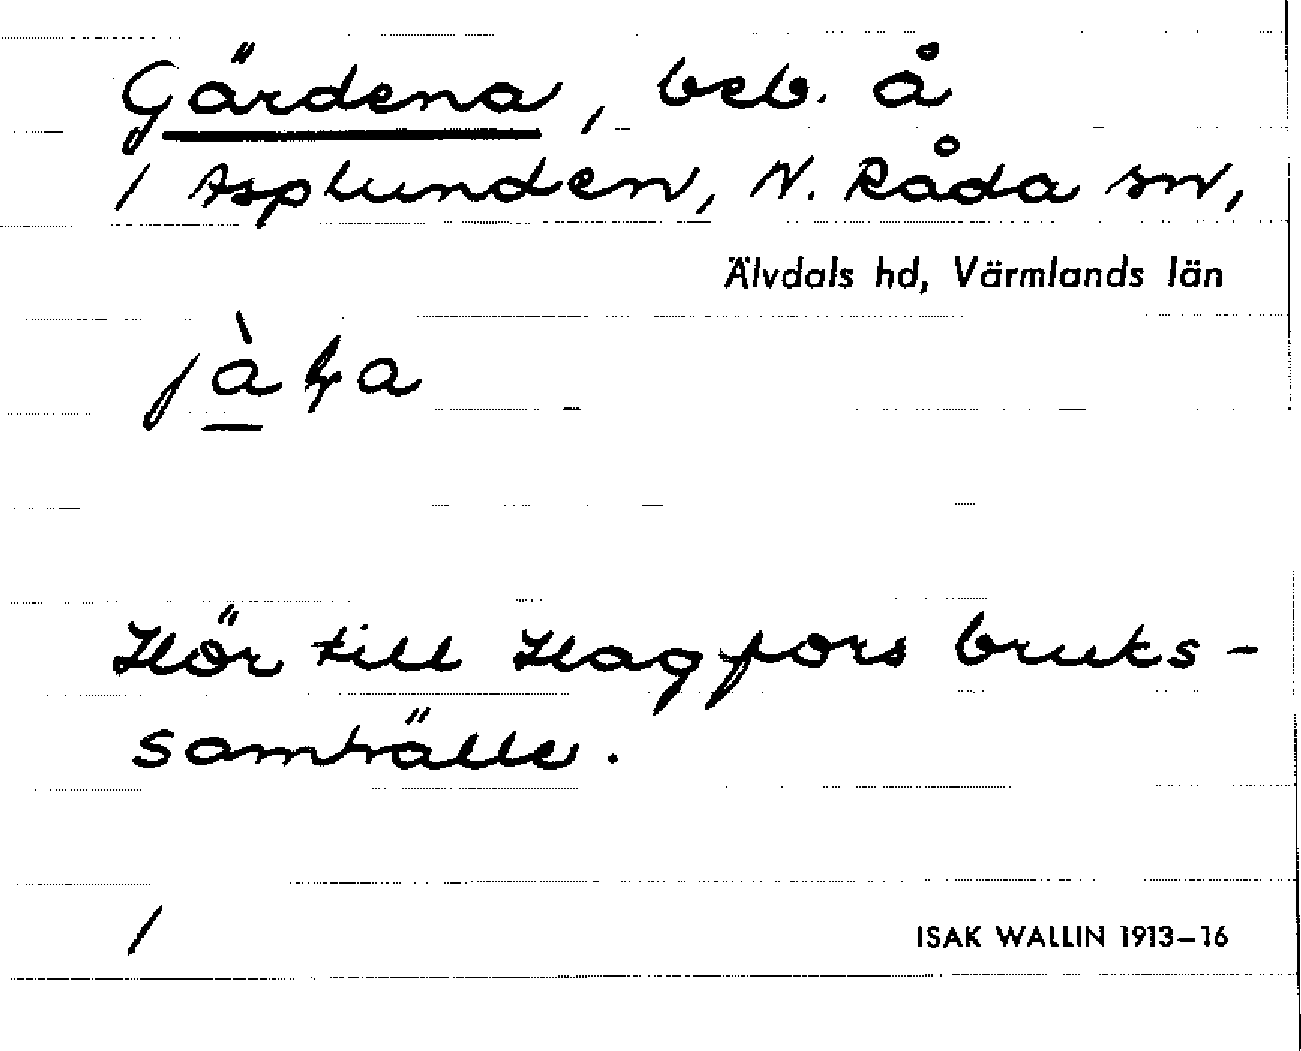 Gärdena, beb. å
1 Asplunden, N. Råda sn,
Älvdals hd, Värmlands län
Hör till Hagfors bruks-
samhälle.
1
ISAK WALLIN 1913–16